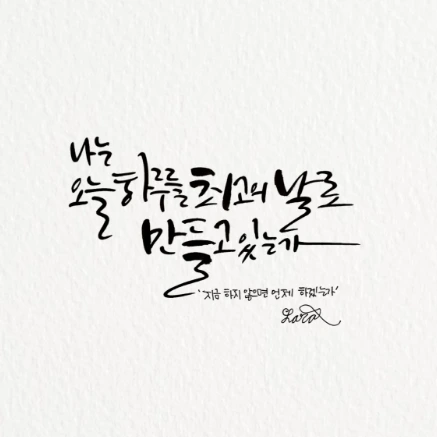 나는
오늘 하루를 최고의 날로
만들고 있는가
'지금 하지 않으면 언제 하겠는가'